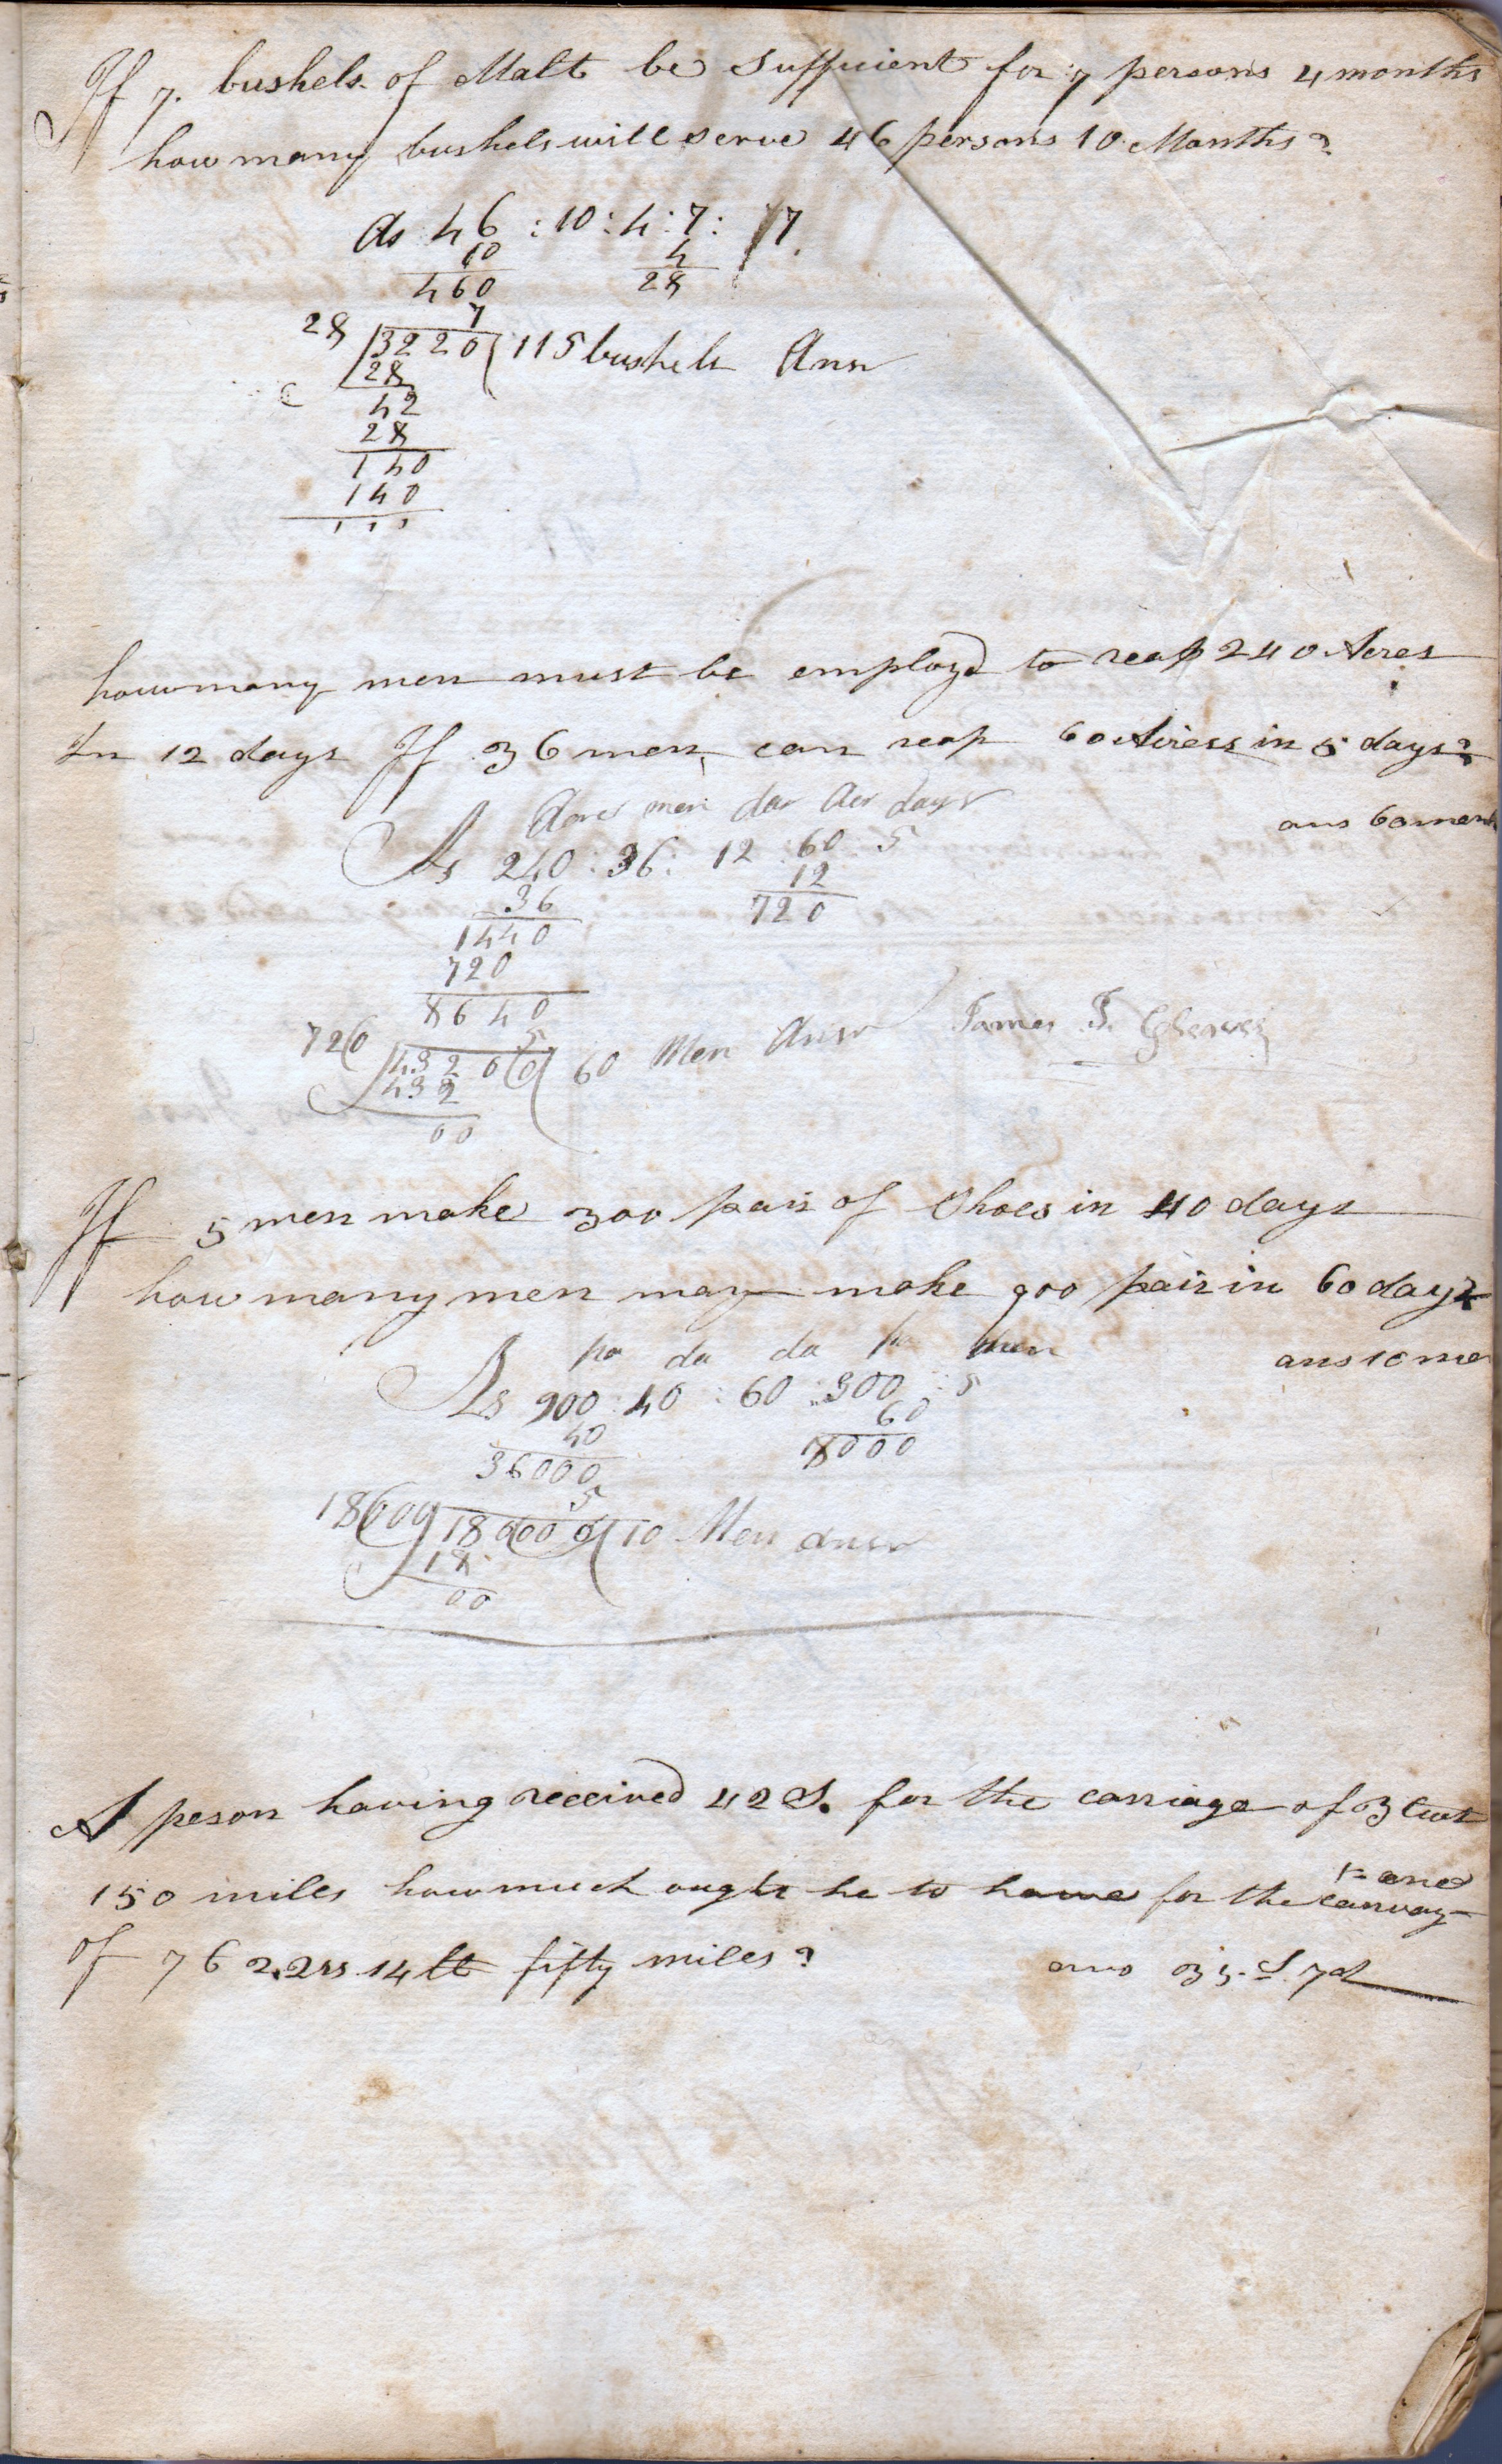 If 7. bushels. of Malt be Suffucient for 7 persons 4 months
how many bushels will serve 46 persons 10 Months?
As 46 : 10 : 4 : 7 : 7
10 4
460 28
7
28 3220 ( 115 bushels Ansr
28
42
28
140
140
how many men must be employd to reap 240 Acres
In 12 days If 36 men can reap 60 Acress in 5 days?
Acre men da Acr days
ans 60 men
As 240 : 36 : 12 : 60 : 5
36 12
1440 720
720
8640
5
720 43200 ( 60 Men Ansr James T.
432
00
If 5 men make 300 pair of Shoes in 40 days
how many men may make 900 pair in 60 days
pa da da pa men
ans 10 me
As 900 : 40 : 60 : 300 : 5
40 60
36000 18000
5
18000 180000 ( 10 Men ansr
18
00
A peson having received 42 S. for the carriage of 3 Cwt
150 miles how much ought he to have for the
of 7 6 2.2rs 14 lt fifty miles? ans 35. S. 7d